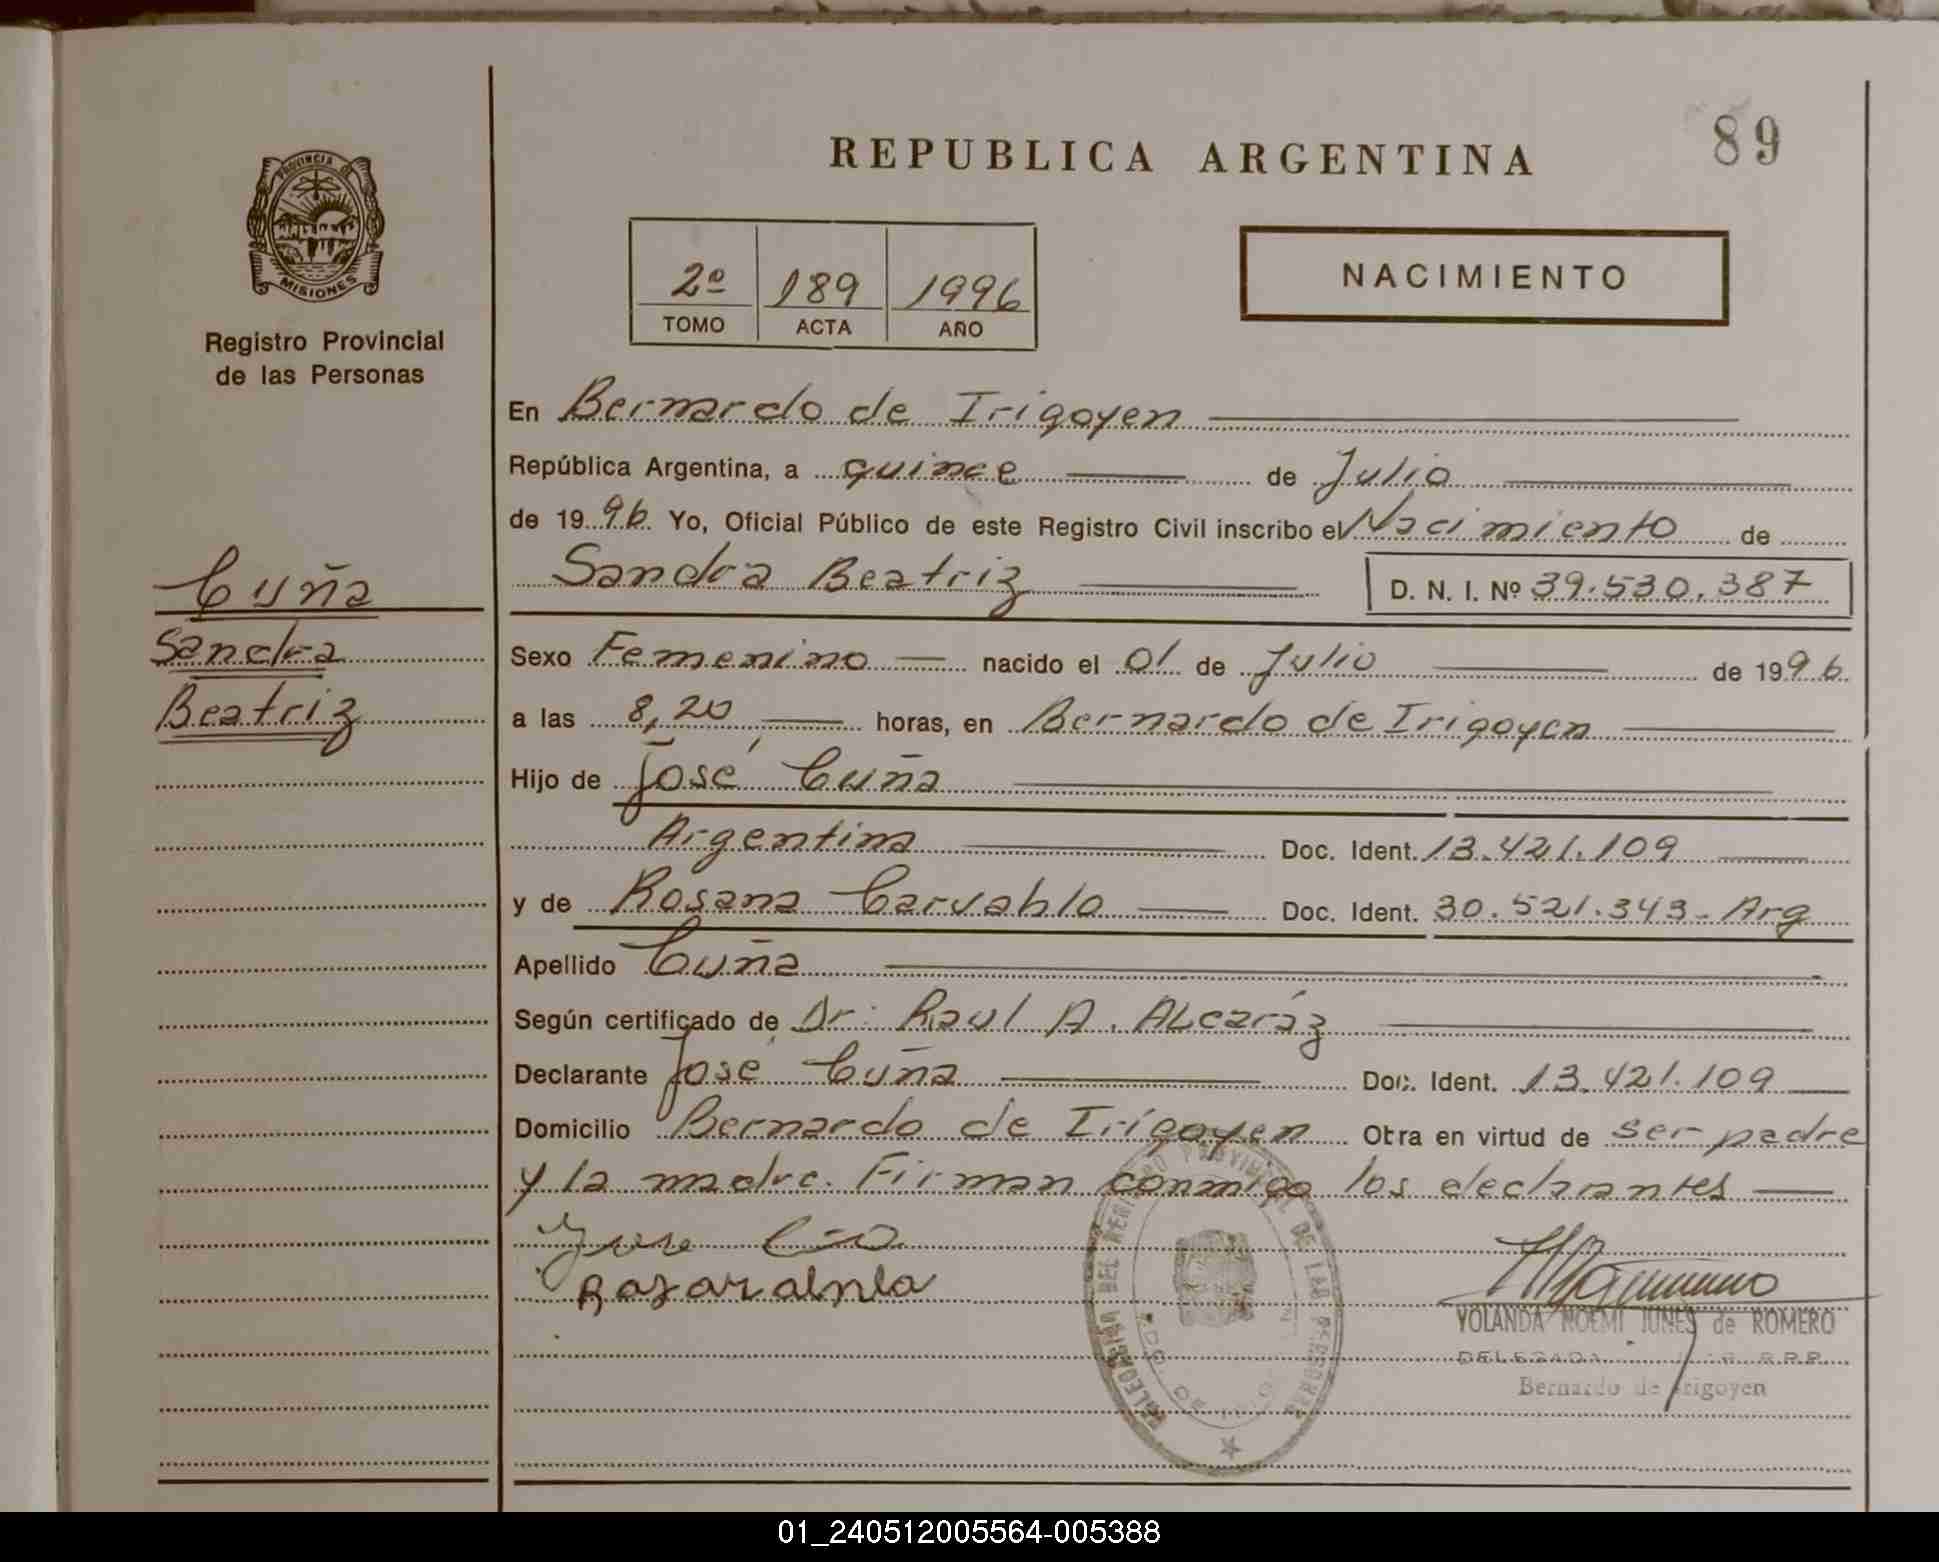 REPUBLICA ARGENTINA
89
PROVINCIA DE
MISIONES
Registro Provincial
de las Personas
2º 189 1996
TOMO ACTA AÑO
NACIMIENTO
En Bernardo de Irigoyen
República Argentina, a quince de Julio
de 1996 Yo, Oficial Público de este Registro Civil inscribo el Nacimiento de
Sandra Beatriz D. N. I. Nº 39.530.387
Cuña
Sandra
Beatriz
Sexo Femenino nacido el 01 de Julio de 1996
a las 8,20 horas, en Bernardo de Irigoyen
Hijo de José Cuña
Argentina Doc. Ident. 13.421.109
y de Rosana Carvahlo Doc. Ident. 30.521.343 - Arg
Apellido Cuña
Según certificado de Dr: Raul A. ALcaráz
Declarante José Cuña Doc. Ident. 13.421.109
Domicilio Bernardo de Irigoyen Obra en virtud de ser padre
y la madre. Firman conmigo los declarantes
DEL REGISTRO PROVINCIAL DE LAS PERSONAS
YOLANDA NOEMI JUNES de ROMERO
DELEGADA R.P.P.
Bernardo de Irigoyen
01_240512005564-005388